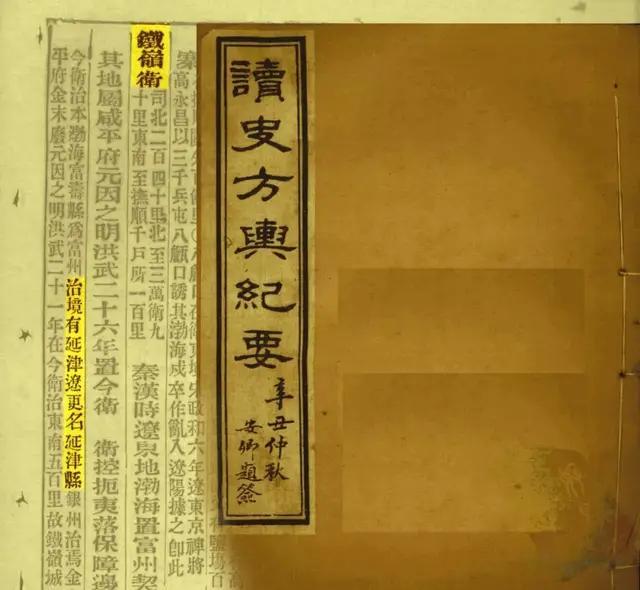 讀史方輿紀要
辛丑仲秋
安卿題簽
宋政和六年遼東京裨將
高永昌以三千兵屯八甔口誘其渤海戍卒作亂入遼陽據之卽此
鐵嶺衛
司北二百四十里北至三萬衛九
十里東南至撫順千戶所一百里
秦漢時遼東地渤海置富州契
其地屬咸平府元因之明洪武二十六年置今衛 衛控扼夷落保障邊
今衛治本渤海富壽縣爲富州治境有延津遼更名延津縣銀州治焉金
平府金末廢元因之明洪武二十一年在今衛治東南五百里故鐵嶺城